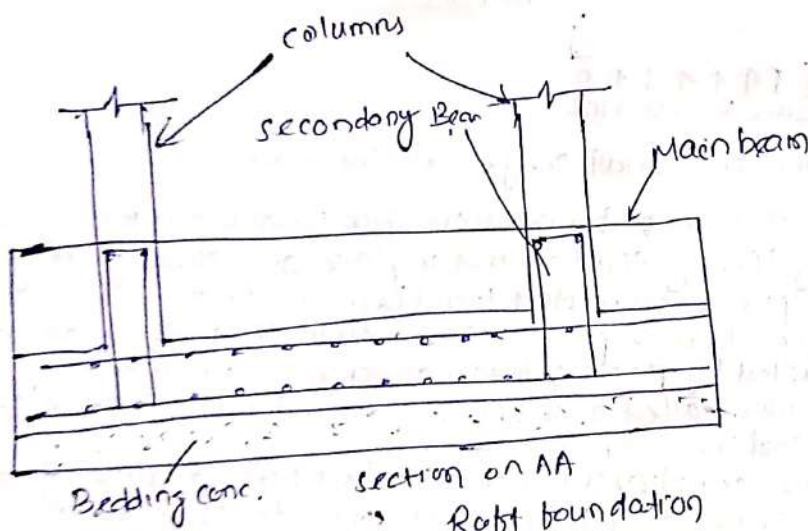 columns
secondary Beam
Main beam
Bedding conc.
section on AA
Raft foundation